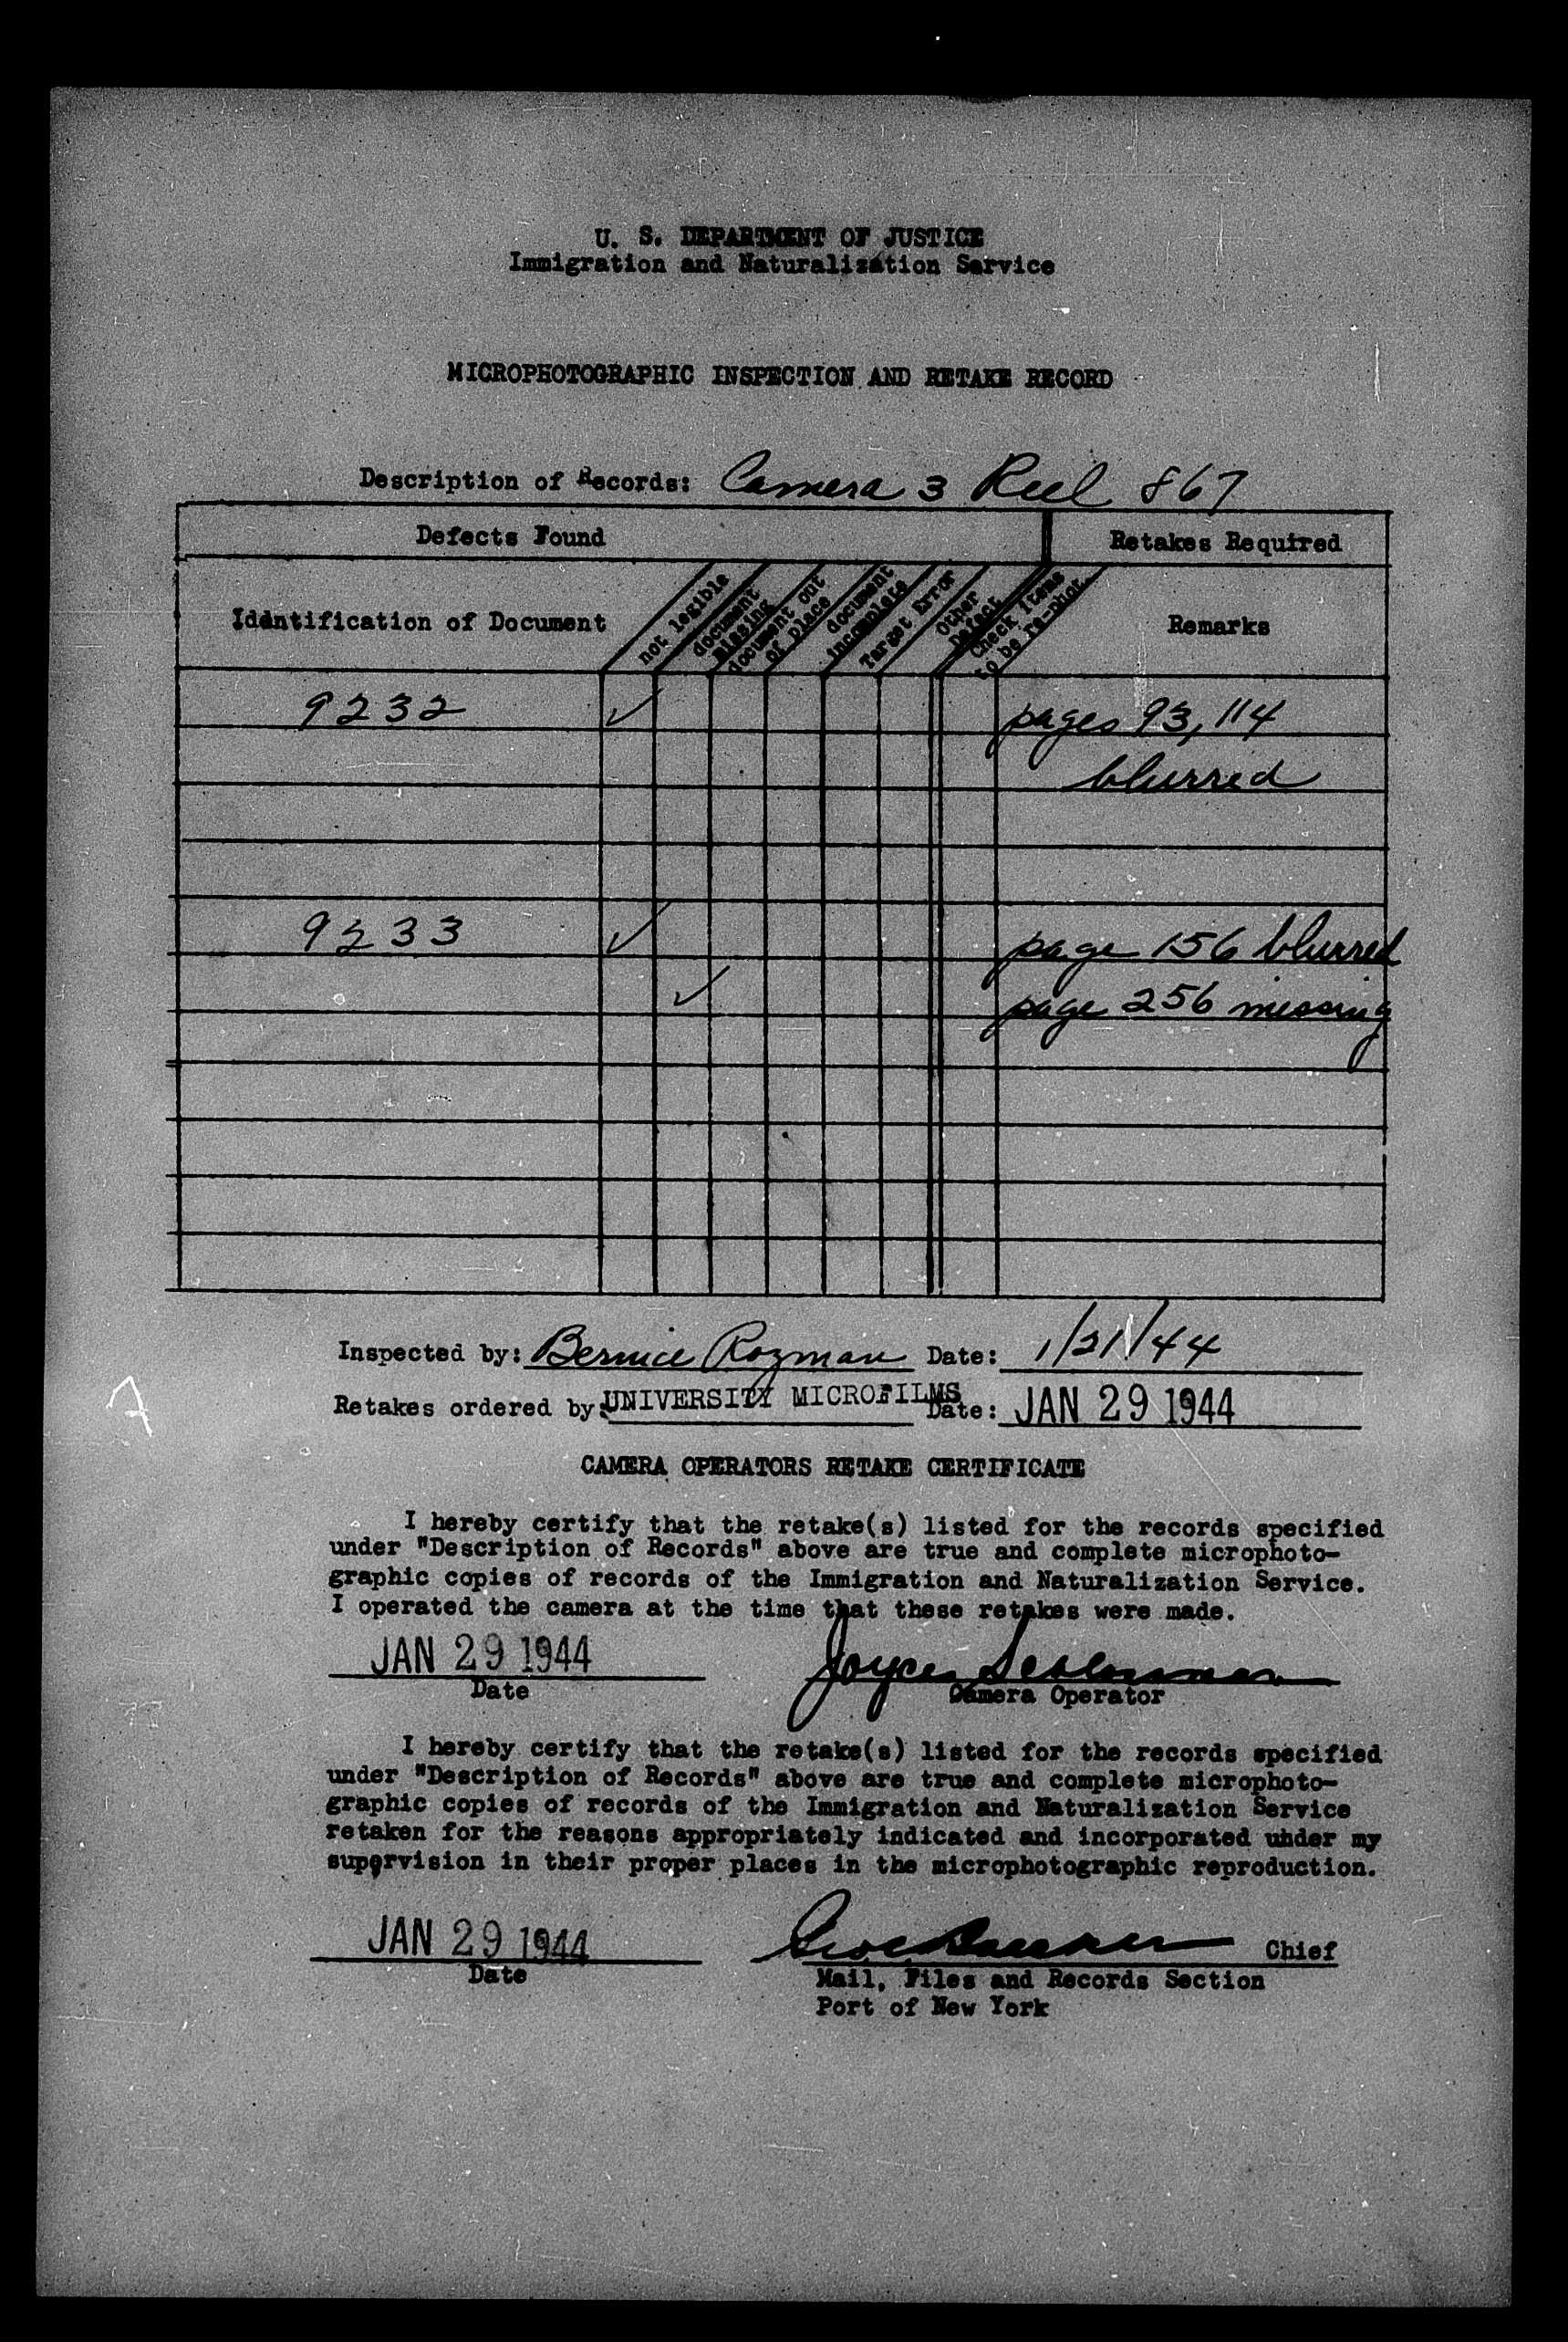 U. S. DEPARTMENT OF JUSTICE
Immigration and Naturalization Service
MICROPHOTOGRAPHIC INSPECTION AND RETAKE RECORD
Description of Records: Camera 3 Reel 867
Defects Found Retakes Required
Identification of Document not legible document missing document out of place document incomplete Target Error Other Defect Check items to be re-phot. Remarks
9232 ✓ pages 93, 114
blurred
9233 ✓ page 156 blurred
✓ page 256 missing
Inspected by: Bernice Rozman Date: 1/21/44
Retakes ordered by: UNIVERSITY MICROFILMS Date: JAN 29 1944
CAMERA OPERATORS RETAKE CERTIFICATE
I hereby certify that the retake(s) listed for the records specified
under "Description of Records" above are true and complete microphoto-
graphic copies of records of the Immigration and Naturalization Service.
I operated the camera at the time that these retakes were made.
JAN 29 1944 Joyce
Date Camera Operator
I hereby certify that the retake(s) listed for the records specified
under "Description of Records" above are true and complete microphoto-
graphic copies of records of the Immigration and Naturalization Service
retaken for the reasons appropriately indicated and incorporated under my
supervision in their proper places in the microphotographic reproduction.
JAN 29 1944 Chief
Date Mail, Files and Records Section
Port of New York